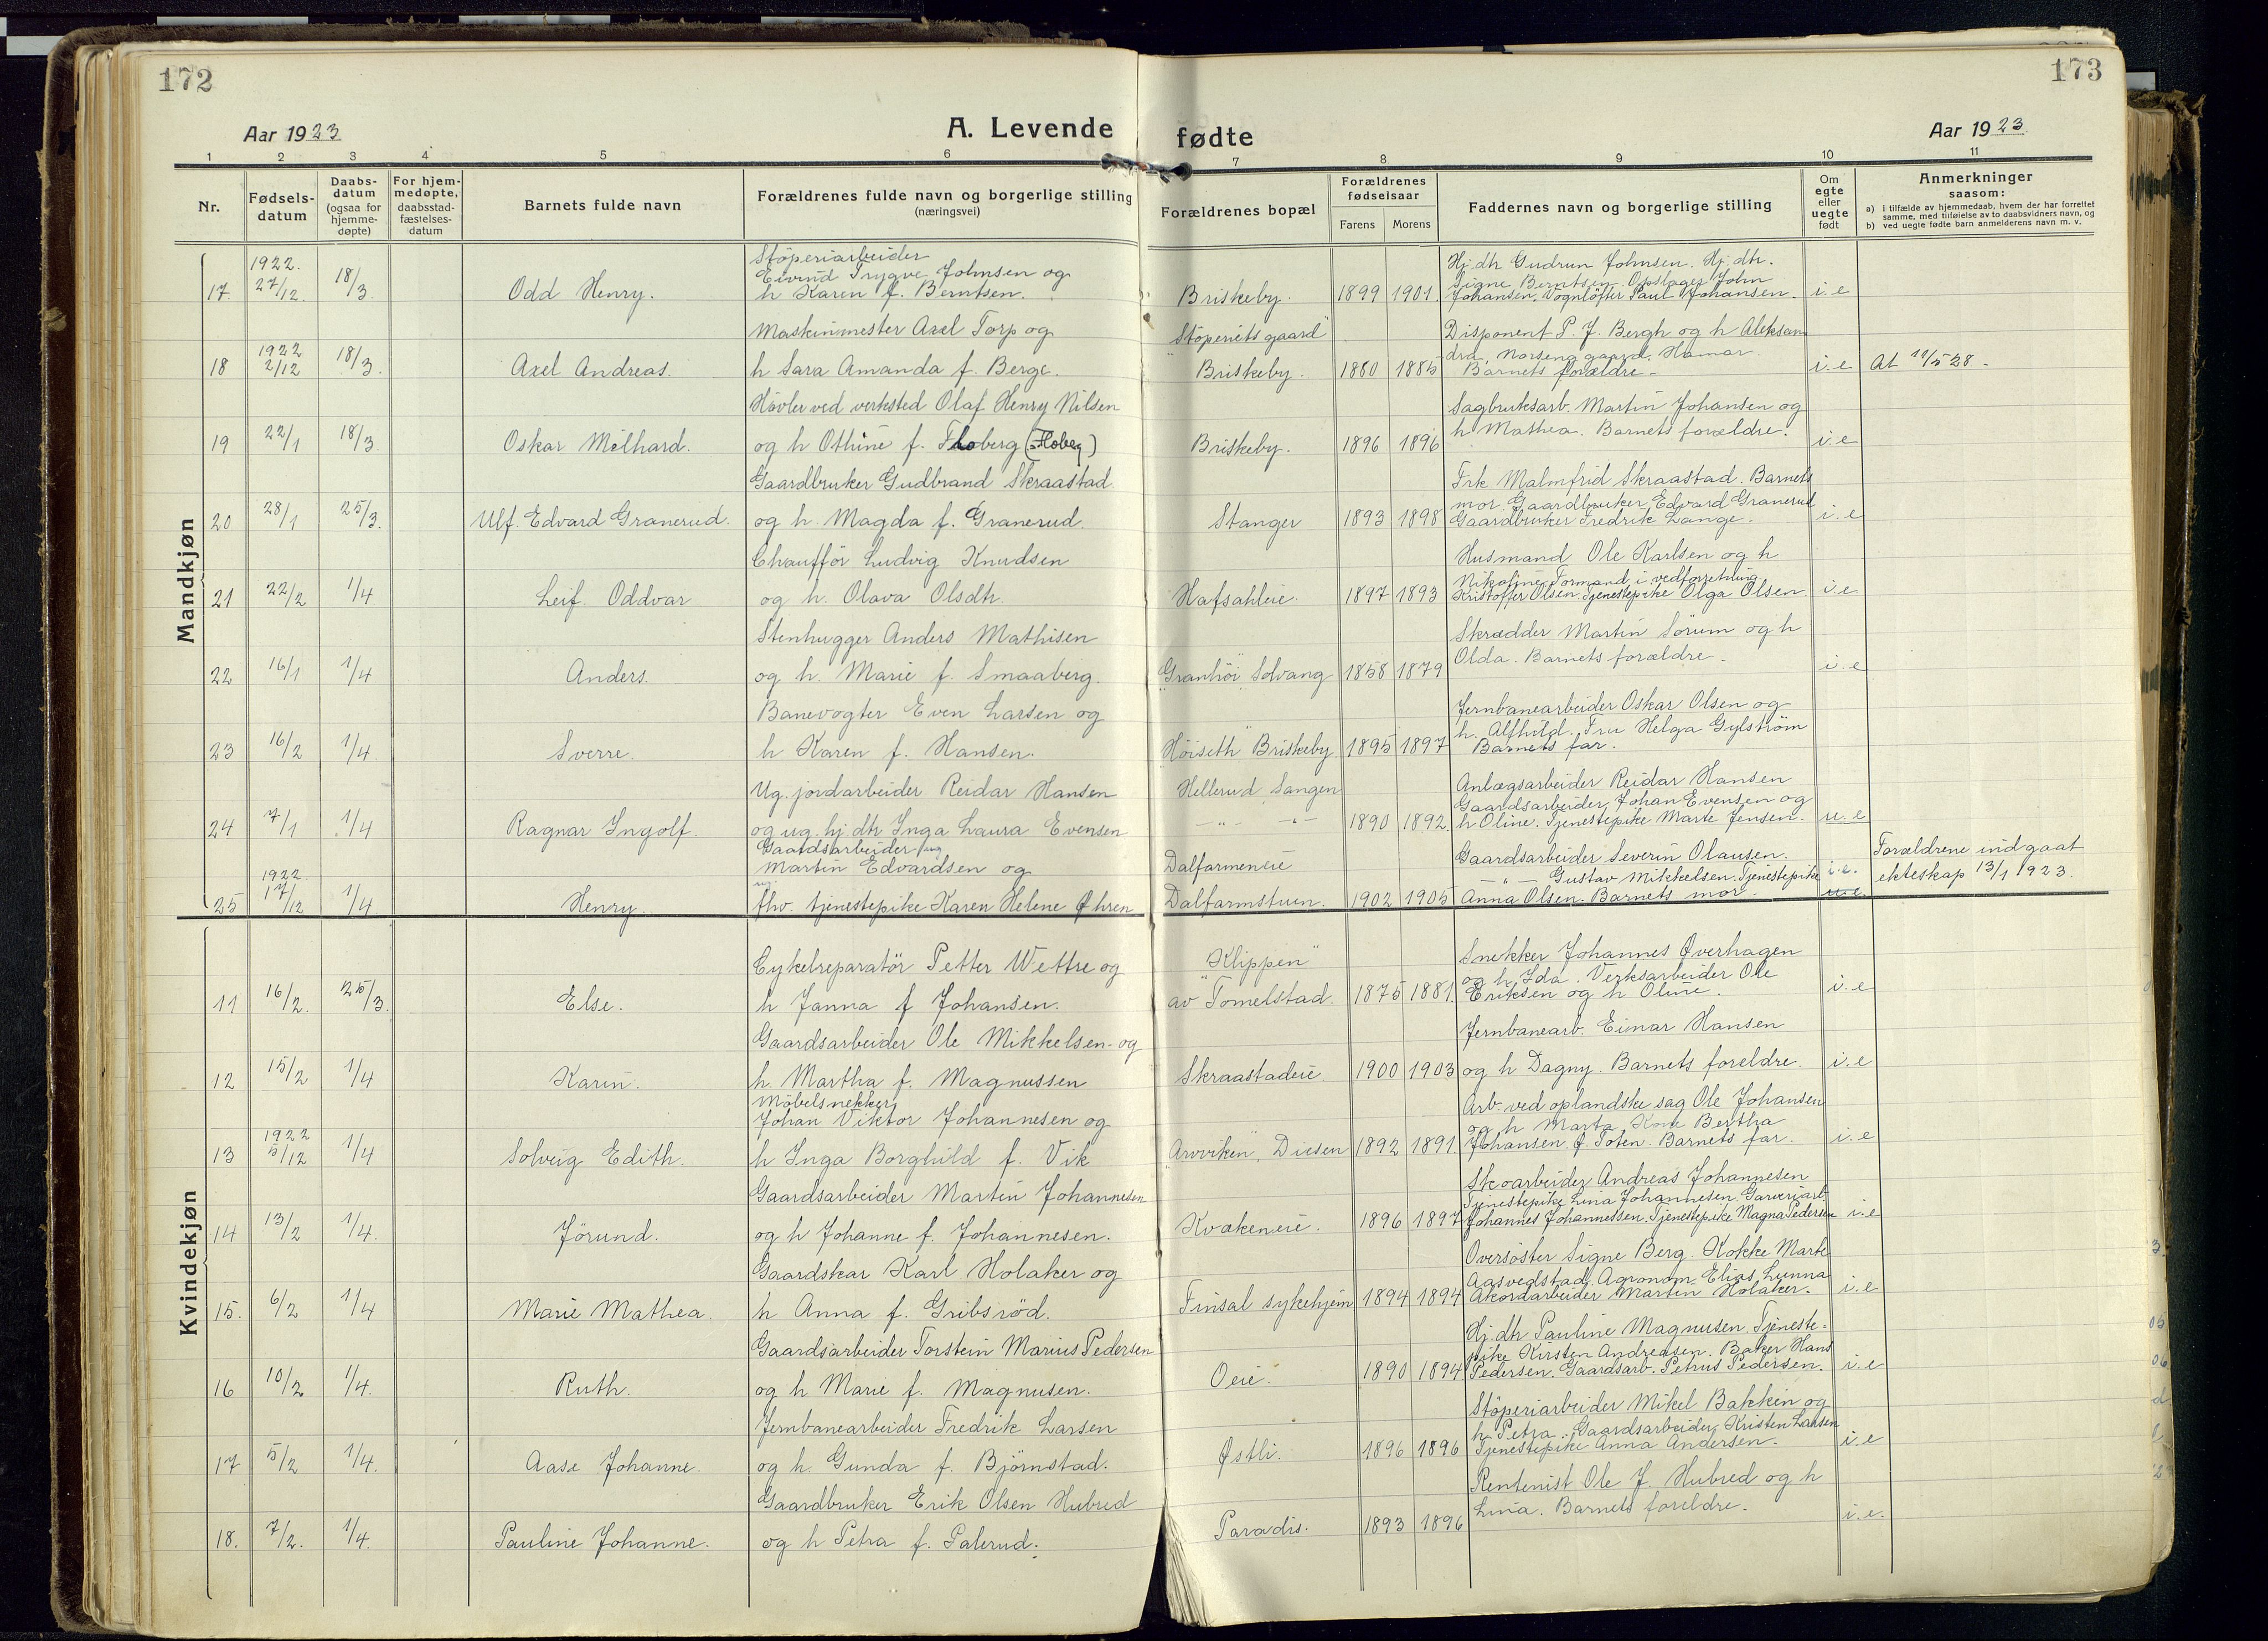 172
173
Aar 1923
A. Levende
fødte
Aar 1923
1 2 3 4 5 6 7 8 9 10 11
Nr.
Fødsels-
datum
Daabs-
datum
(ogsaa for
hjemme-
døpte)
For hjem-
medøpte,
daabsstad-
fæstelses-
datum
Barnets fulde navn
Forældrenes fulde navn og borgerlige stilling
(næringsvei)
Forældrenes bopæl
Forældrenes
fødselsaar
Farens Morens
Faddernes navn og borgerlige stilling
Om
egte
eller
uegte
født
Anmerkninger
saasom:
a) i tilfælde av hjemmedaab, hvem der har forrettet
samme, med tilføielse av to daabsvidners navn, og
b) ved uegte fødte barn anmelderens navn m. v.
Mandkjøn
17. 1922. 27/12. 18/3. Odd Henry.
Støperiarbeider
Eivind Trygve Johnsen og
h Karen f. Berntsen.
Briskeby. 1899 1901.
Hj.dtr Gudrun Johnsen. Hj.dtr.
Signe Berntsen. Opslager John
Johansen. Vognløfter Paul Johansen.
i.e
18 1922 2/12 18/3. Axel Andreas.
Maskinmester Axel Torp og
h Sara Amanda f. Berge.
"Støperiets gaard"
Briskeby. 1880 1885
Disponent P. J. Bergh og h Aleksan
dra, Norseng gaard, Hamar.
Barnets forældre.
i.e At 11/5 28.
19 22/1 18/3. Oskar Milhard.
Høvler ved verksted Olaf Henry Nilsen
og h Othine f. Floberg (Floberg)
Briskeby. 1896 1896
Sagbruksarb. Martin Johansen og
h Mathea. Barnets forældre.
i.e
20 28/1 25/3. Ulf Edvard Granerud.
Gaardbruker Gudbrand Skraastad
og h. Magda f. Granerud.
Stanger 1893 1898
Frk Malmfrid Skraastad. Barnets
mor. Gaardbruker Edvard Granerud
Gaardbruker Fredrik Lange.
i.e
21 22/2 1/4 Leif Oddvar
Chauffør Ludvig Knudsen
og h. Olava Olsdtr.
Hafsahleie. 1897 1893
Husmand Ole Karlsen og h
Nikoline. Formand i vedforretning
Kristoffer Olsen. Tjenestepike Olga Olsen
i.e.
22 16/1 1/4 Anders.
Stenhugger Anders Mathisen
og h. Marie f. Smaaberg.
"Granhöi" Solvang 1858 1879
Skrædder Martin Sørum og h
Olda. Barnets forældre.
i.e
23 16/2 1/4. Sverre.
Banevogter Even Larsen og
h Karen f. Hansen.
"Höiseth" Briskeby 1895 1897
Jernbanearbeider Oskar Olsen og
h. Alfhild. Fru Helga Gylstrøm
Barnets far.
24 7/1 1/4 Ragnar Ingolf.
Ug. jordarbeider Reidar Hansen
og ug. hj.dtr Inga Laura Evensen
Hellerud Sangen
—"— —"— 1890 1892.
Anlægsarbeider Reidar Hansen
Gaardsarbeider Johan Evensen og
h Oline. Tjenestepike Marte Jensen.
u.e
25 1922. 17/12 1/4 Henry.
Gaardsarbeider ug
Martin Edvardsen og
ug
fhv. tjenestepike Karen Helene Øhren
Dalfarmeneie
Dalfarmstuen. 1902 1905
Gaardsarbeider Severin Olausen.
—"— Gustav Mikkelsen. Tjenestepike
Anna Olsen. Barnets mor.
i.e.
u.e
Forældrene indgaat
ekteskap 13/1 1923.
Kvindekjøn
11 16/2. 25/3. Else.
Cykelreparatör Petter Wettre og
h Janna f Johansen.
"Klippen"
av Tomelstad. 1875 1881.
Snekker Johannes Overhagen
og h Ida. Verksarbeider Ole
Eriksen og h Oline.
i.e
12 15/2 1/4 Karin.
Gaardsarbeider Ole Mikkelsen og
h. Martha f. Magnussen
Skraastadeie. 1900 1903
Jernbanearb. Einar Hansen
og h Dagny. Barnets foreldre.
i.e
13 1922 5/12 1/4 Solveig Edith.
Möbelsnekker
Johan Viktor Johannesen og
h Inga Borghild f. Vik
"Arvviken", Diesen 1892 1891.
Arb. ved oplandske sag Ole Johansen
og h Marta. Kone Bertha
Johansen Ø. Toten. Barnets far.
i.e
14 13/2 1/4. Jörund.
Gaardsarbeider Martin Johannesen
og h Johanne f. Johannesen.
Kvakeneie. 1896 1897
Skoarbeider Andreas Johannesen
Tjenestepike Lina Johannesen. Garveriarb.
Johannes Johannessen. Tjenestepike Magna Pedersen
i.e
15. 6/2 1/4 Marie Mathea.
Gaardskar Karl Holaker og
h Anna f. Gribsröd.
Finsal sykehjem 1894 1894
Oversöster Signe Berg. Kokke Marte
Aasvedstad. Agronom Elias Lunna
Akordarbeider Martin Holaker.
i.e
16 10/2 1/4. Ruth.
Gaardsarbeider Torstein Marius Pedersen
og h Marie f. Magnusen.
Oeie. 1890 1894
Hj.dtr Pauline Magnusen. Tjeneste-
pike Kirsten Andreasen. Baker Hans
Pedersen. Gaardsarb. Petrus Pedersen.
i.e
17 5/2 1/4. Aase Johanne.
Jernbanearbeider Fredrik Larsen
og h. Gunda f. Björnstad.
Østli. 1896 1896
Støperiarbeider Mikel Bakken og
h Petra. Gaardsarbeider Kristen Larsen
Tjenestepike Anna Andersen.
i.e
18. 7/2. 1/4. Pauline Johanne.
Gaardbruker Erik Olsen Hubred
og h Petra f. Palerud.
Paradis. 1893 1896
Rentenist Ole J. Hubred og h
Lina. Barnets foreldre.
i.e.